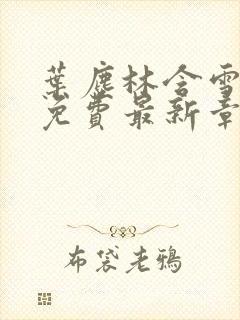 葉塵林含雪
免費最新章
布袋老鴉